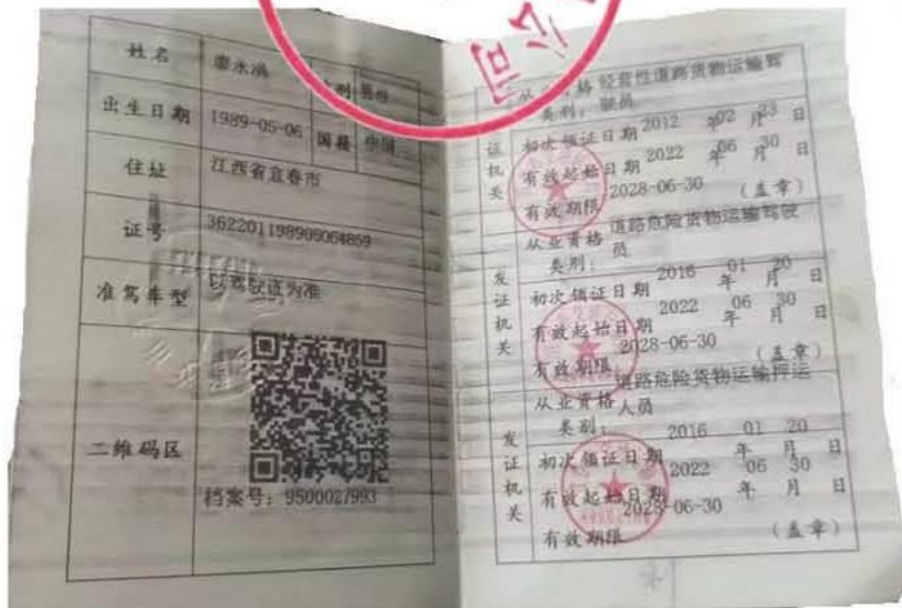 公司
姓名 廖水洪 性别 男性
出生日期 1989-05-06 国籍 中国
住址 江西省宜春市
证号 362201198905064859
准驾车型 以驾驶证为准
二维码区
档案号：9500027993
从业资格类别：经营性道路货物运输驾驶员
证机关
初次领证日期 2012年02月23日
有效起始日期 2022年06月30日
有效期限 2028-06-30 （盖章）
从业资格类别：道路危险货物运输驾驶员
发证机关
初次领证日期 2016年01月20日
有效起始日期 2022年06月30日
有效期限 2028-06-30 （盖章）
从业资格类别：道路危险货物运输押运人员
发证机关
初次领证日期 2016年01月20日
有效起始日期 2022年06月30日
有效期限 2028-06-30 （盖章）